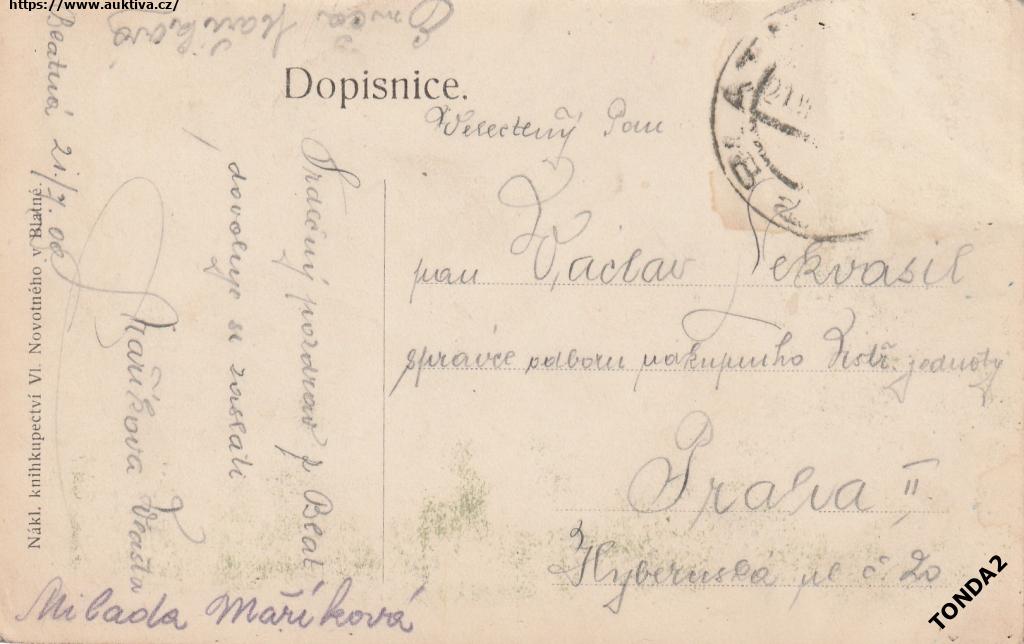 https://www.auktiva.cz/
Dopisnice.
Blatná 21/7. 08
Srdečný pozdrav z Blat
dovoluje si zaslati
Maříkova Vlasta
Milada Maříková
Veslectěný Pan
pan Václav Nekvasil
správce odboru nákupního Ústř. jednoty
Praha II
Hybernská ul č. 20
BLAT
Nákl. knihkupectví Vl. Novotného v Blatné.
TONDA2